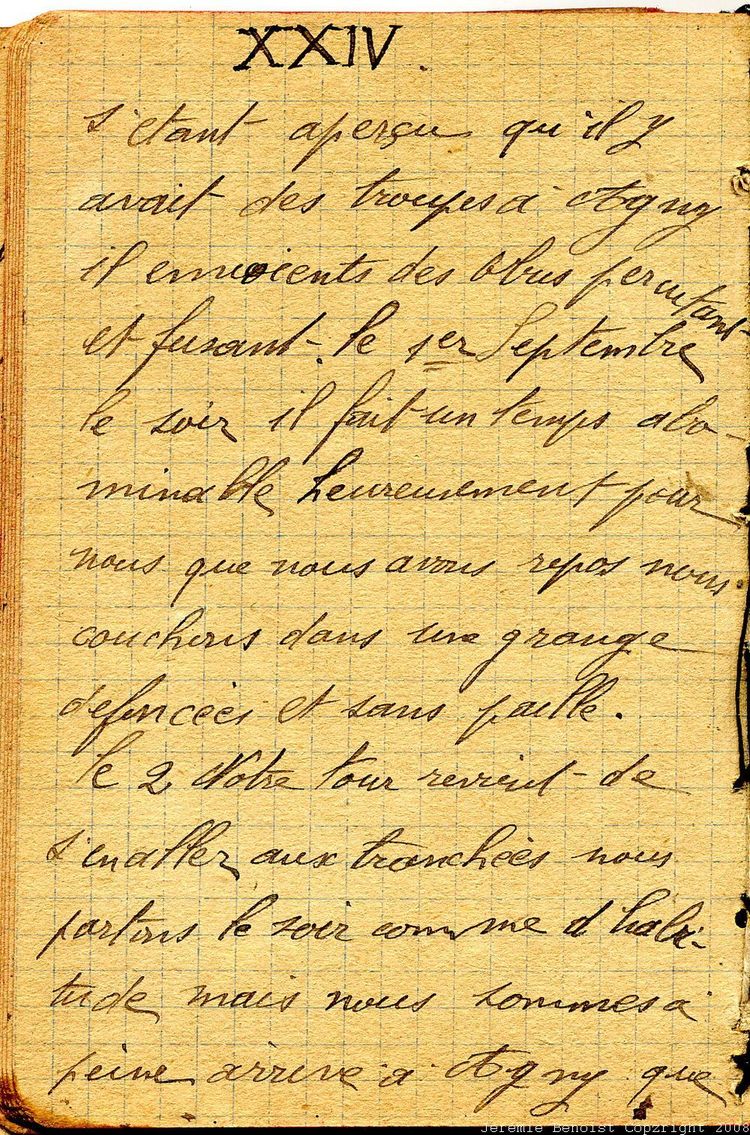 XXIV.
s'etant aperçu qu'il y
avait des troupes à Agny
il envoients des obus percutant
et fusant. le 1er Septembre
le soir il fait un temps abo-
minable heureusement pour
nous que nous avons repos nous
couchons dans une grange
defoncées et sans paille.
le 2 Notre tour revient de
s'en aller aux tranchées nous
partons le soir comme d'habi-
tude mais nous sommes à
peine arrive à Agny que
Jeremie Benoist Copyright 2008